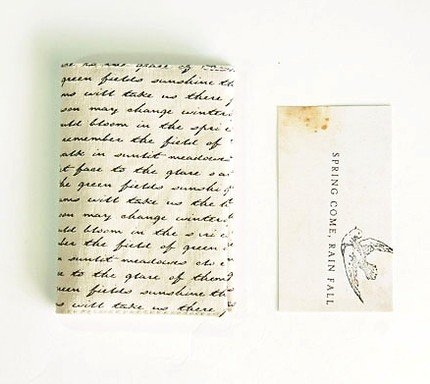 green fields sunshine
ms will take us there
son may change winter
uld bloom in the
remember the field of
alk in sunlit meadows
t face to the glare
he green fields sunshi
ms will take us the
son may change winter
uld bloom in the
ber the field of green
sunlit meadows
e to the glare of them
een fields sunshine th
s will take us there
SPRING COME, RAIN FALL